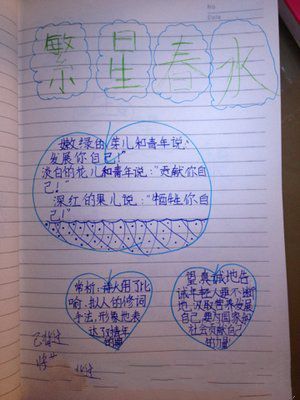 No
Date
繁星春水
嫩绿的芽儿和青年说:
发展你自己!"
淡白的花儿和青年说:"贡献你自
己!"
深红的果儿说:"牺牲你自
己!"
赏析:诗人用了比
喻、拟人的修词
手法,形象地表
达了对青年
望真诚地告
诫年轻人要不断
地汲取营养发展
自己,要为国家和
社会贡献自己
的力量!